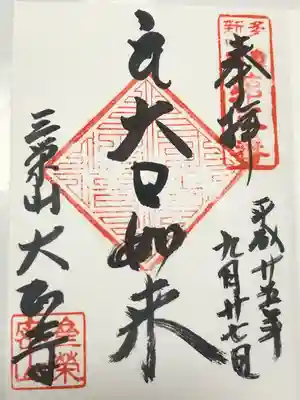 奉拝
平成廿五年
九月廿七日
大日如来
三栄山 大正寺